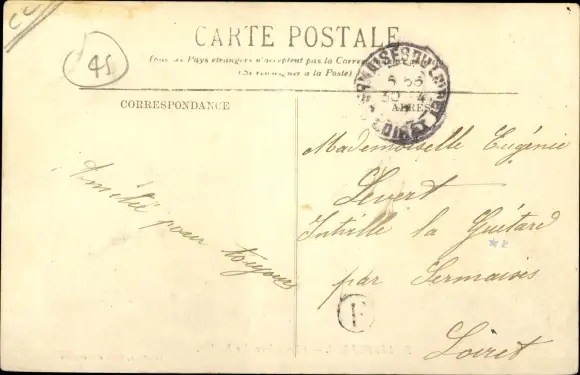 CARTE POSTALE
(Tous les Pays étrangers n'acceptent pas la Corres
(Se renseigner à la Poste)
CORRESPONDANCE
SERMAISES DU LOIRET
5 55
30 4
LOIRET
ADRES
45
Amitié pour toujours
Mademoiselle Eugénie
Levert
Intville la Guétard
par Sermaises
Loiret